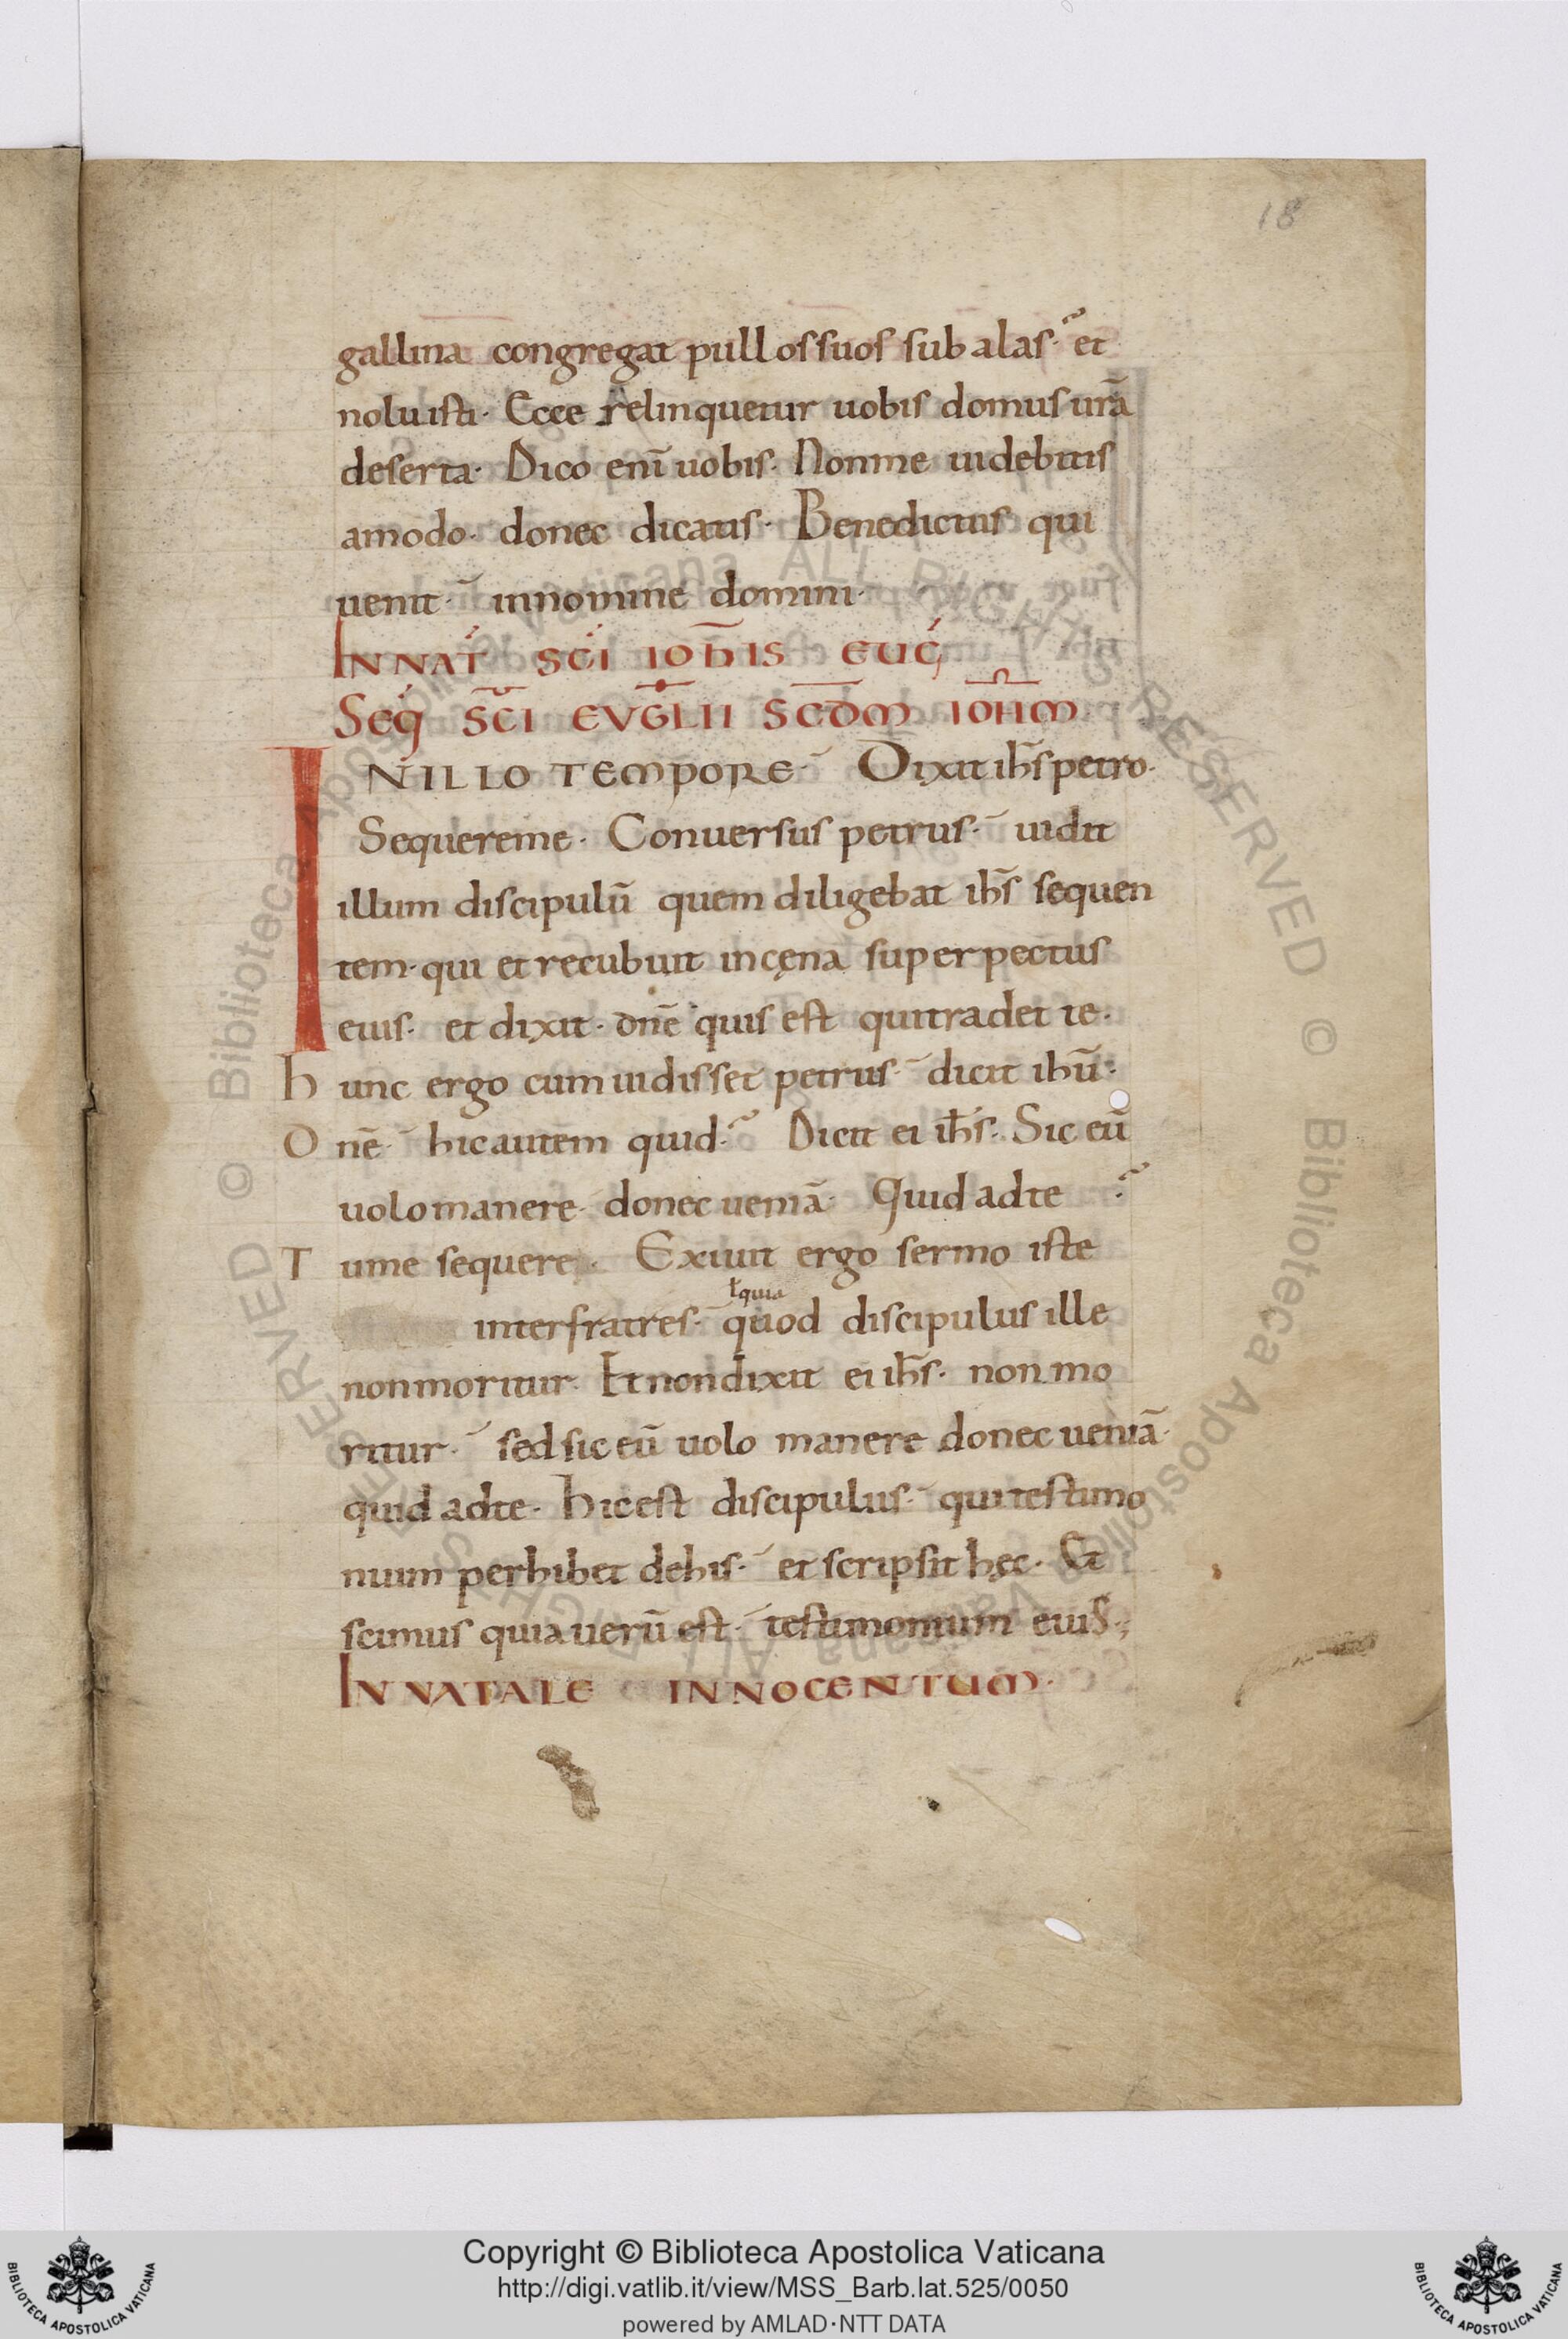 18
gallina congregat pullos suos sub alas· et
noluisti· Ecce relinquetur uobis domus urā
deserta· Dico enī uobis· Nonme uidebitis
amodo· donec dicatis· Benedictus qui
uenit· innomine domini·
IN NAT SCI IOHIS EUG
Seq SCI EVGLII SCDM IOHM
IN ILLO TEMPORE· Dixit ihs petro·
Sequereme· Conuersus petrus· uidit
illum discipulū quem diligebat ihs sequen
tem· qui et recubuit incęna super pectus
eius· et dixit· dnē quis est quitradet te·
hunc ergo cum uidisset petrus· dicit ihū·
Dnē· hic autem quid· Dicit ei ihs· Sic eū
uolo manere· donec ueniā· Quid adte
Tume sequere· Exiuit ergo sermo iste
ł quia
inter fratres· quod discipulus ille
nonmoritur· Et non dixit ei ihs· non mo
ritur· sed sic eū uolo manere donec ueniā·
quid adte· hic est discipulus· qui testimo
nium perhibet dehis· et scripsit hęc· Et
scimus quia uerū est· testimonium eius·,
IN NATALE INNOCENTUM·
Biblioteca Apostolica Vaticana ALL RIGHTS RESERVED © Biblioteca Apostolica Vaticana ALL RIGHTS RESERVED ©
Copyright © Biblioteca Apostolica Vaticana
http://digi.vatlib.it/view/MSS_Barb.lat.525/0050
powered by AMLAD·NTT DATA
BIBLIOTECA APOSTOLICA VATICANA
BIBLIOTECA APOSTOLICA VATICANA